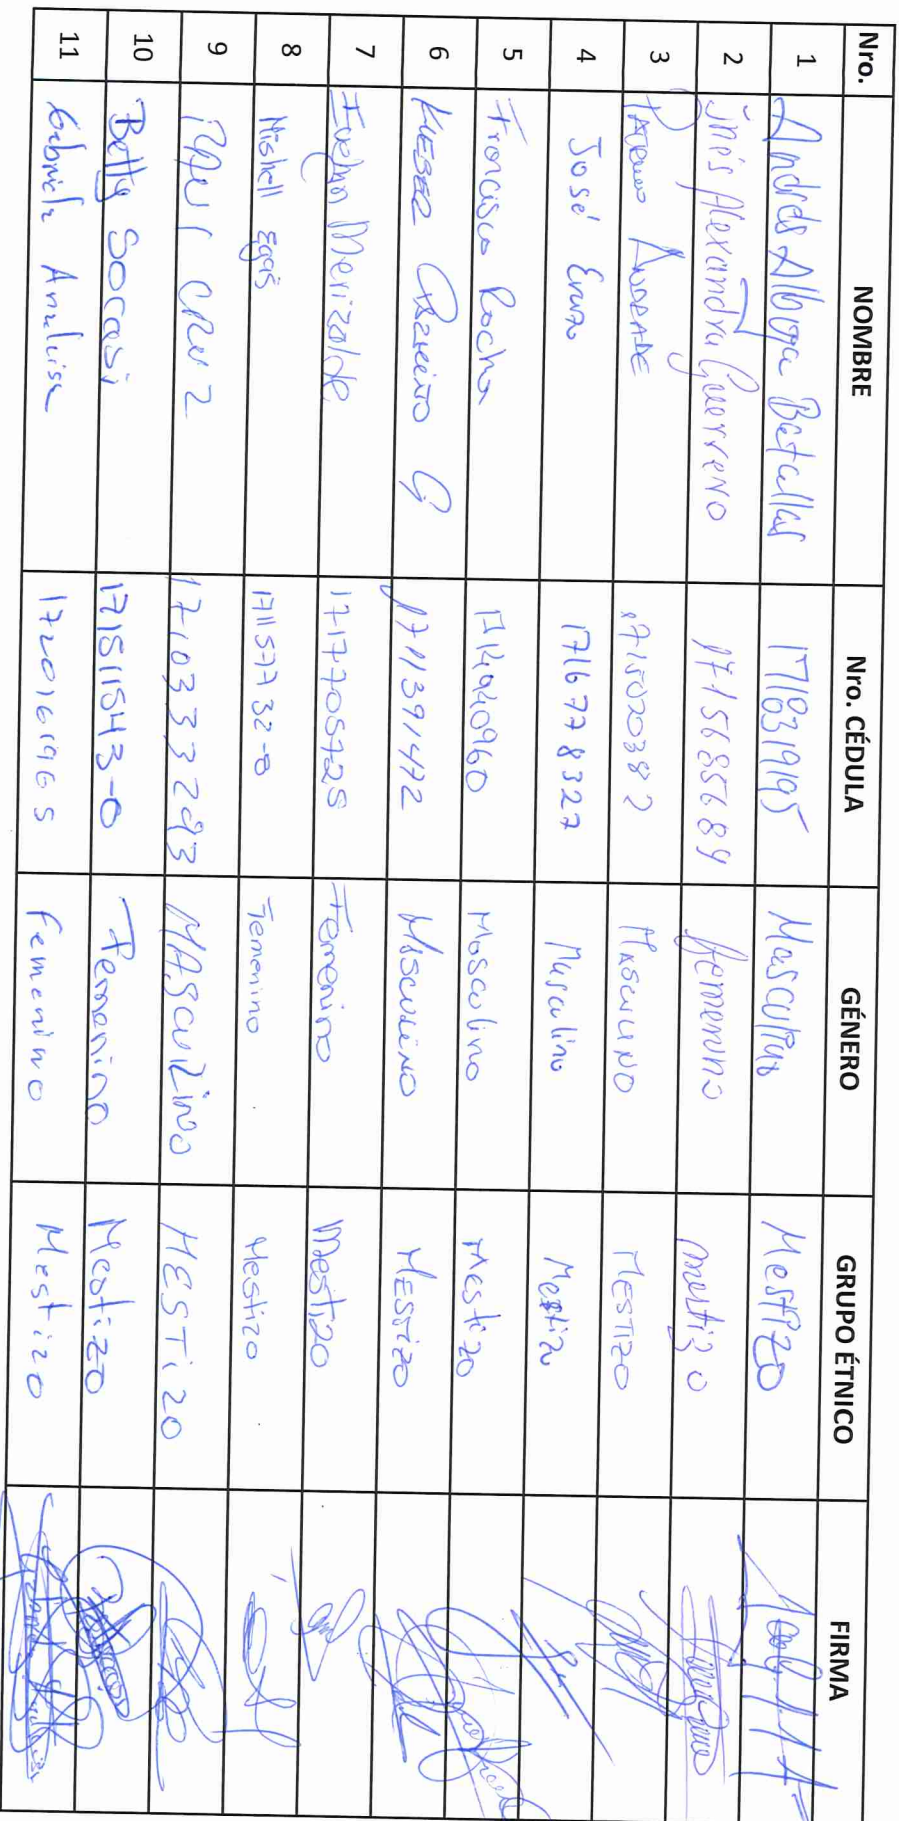 Nro. NOMBRE Nro. CÉDULA GÉNERO GRUPO ÉTNICO FIRMA
1 Andrés Albuja Betallas 1718319195 Masculino Mestizo
2 Inés Alexandra Guerrero 1715685689 femenino mestizo
3 ANDRADE 1715020382 MASCULINO MESTIZO
4 José Erazo 1716778327 Masculino Mestizo
5 Francisco Rocha 1714940960 Masculino Mestizo
6 KLEBER G 1711391472 MASCULINO MESTIZO
7 Evelyn Merizalde 1717705725 Femenino Mestizo
8 Mishell Egas 171157732-8 Femenino Mestizo
9 CRUZ 1710333293 MASCULINO MESTIZO
10 Betty Socasi 171511543-0 Femenino Mestizo
11 Gabriela Analuisa 1720161965 Femenino Mestizo